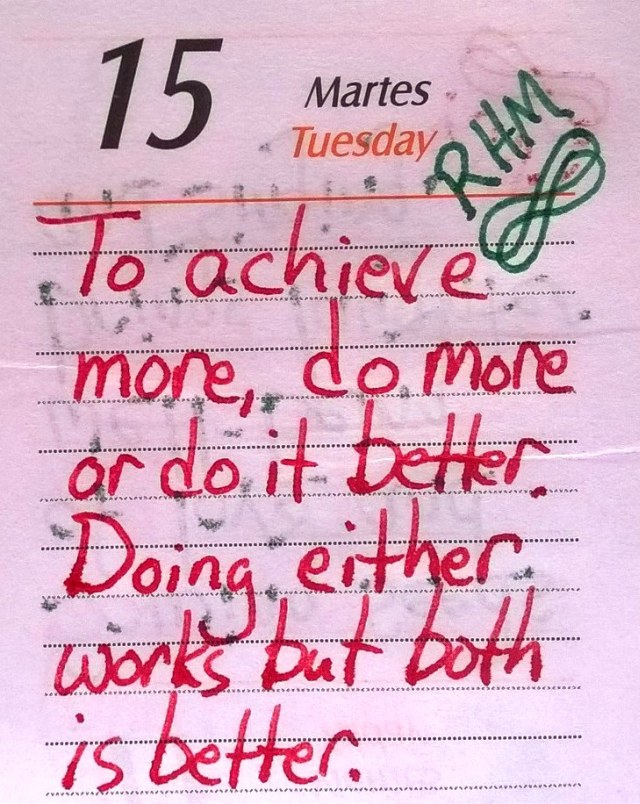 15
Martes
Tuesday
RHM
To achieve
more, do more
or do it better.
Doing either
works but both
is better.